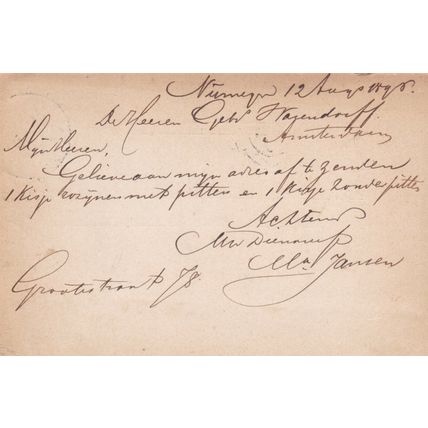 Nijmegen 12 Augs 1898.
De Heeren Gebrs Hagendorff.
Amsterdam
Mijne Heeren,
Gelieve aan mijn adres af te zenden
1 Kisje rozijnen met pitten en 1 Kisje zonder pitten
Achtend
Uw Dienaar
Jansen
Grootestraat 78.